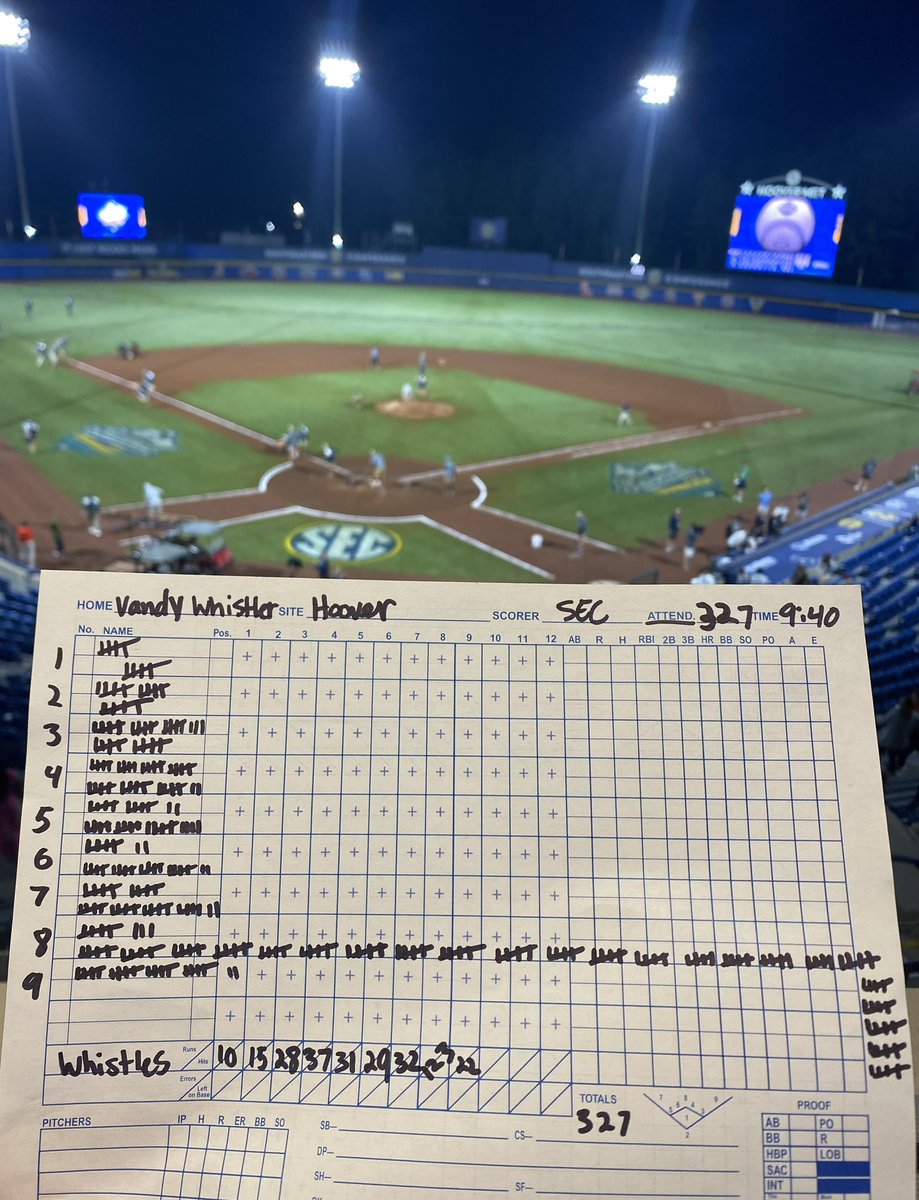 HOOVER MET
SEC
HOME Vandy Whistler SITE Hoover SCORER SEC ATTEND. 327 TIME 9:40
No. NAME Pos. 1 2 3 4 5 6 7 8 9 10 11 12 AB R H RBI 2B 3B HR BB SO PO A E
1
2
3
4
5
6
7
8
9
Whistles 10 15 28 37 31 29 32 22
Runs
Hits
Errors
Left
on Base
TOTALS
327
7 8 9
5 6 4 3
1
2
PROOF
PITCHERS IP H R ER BB SO
SB— CS—
DP—
SH— SF—
AB PO
BB R
HBP LOB
SAC
INT